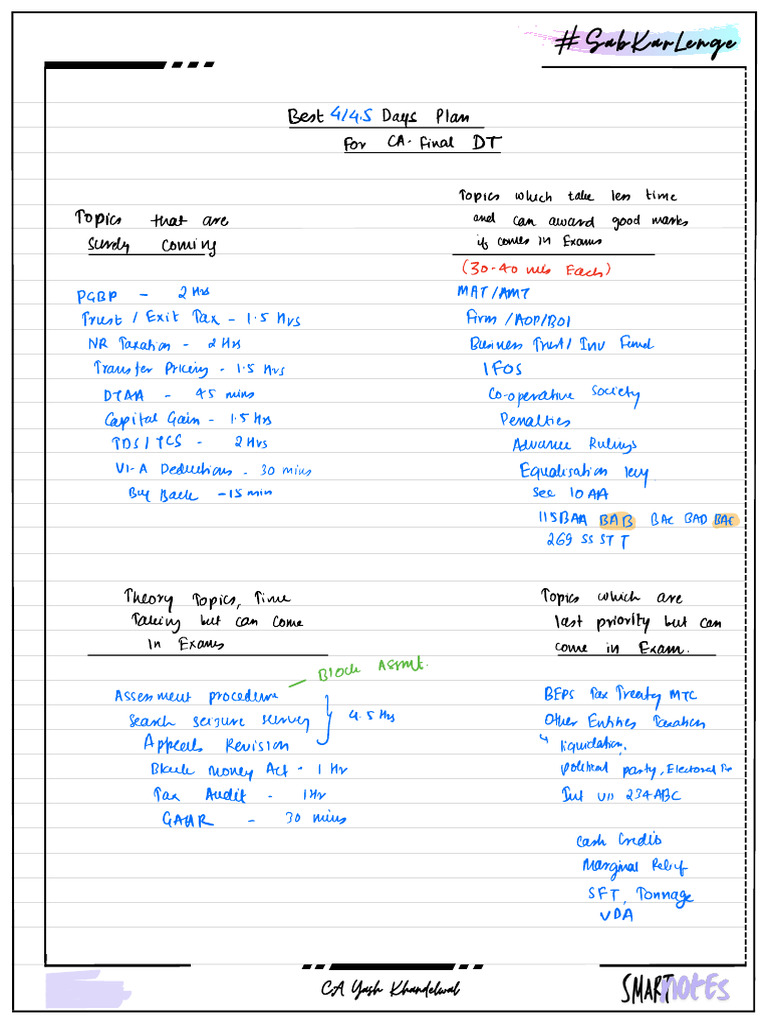 #SabKarLenge
Best 4/4.5 Days Plan
For CA-Final DT
Topics that are
surely coming
PGBP - 2 Hrs
Trust / Exit Tax - 1.5 Hrs
NR Taxation - 2 Hrs
Transfer Pricing - 1.5 Hrs
DTAA - 45 mins
Capital Gain - 1.5 Hrs
TDS / TCS - 2 Hrs
VI-A Deductions - 30 mins
Buy Back - 15 min
Topics which take less time
and can award good marks
if comes in Exams
(30-40 mins Each)
MAT/AMT
Firm /AOP/BOI
Business Trust/ Inv Fund
IFOS
Co-operative Society
Penalties
Advance Rulings
Equalisation levy
Sec 10AA
115BAA BAB BAC BAD BAE
269 SS ST T
Theory Topics, Time
Taking but can come
In Exams
Block Assmt.
Assessment procedure
Search seizure survey
Appeals Revision
4.5 Hrs
Black money Act - 1 Hr
Tax Audit - 1Hr
GAAR - 30 mins
Topics which are
last priority but can
come in Exam.
BEPS Tax Treaty MTC
Other Entities Taxation
↳ liquidation,
Political party, Electoral
Int u/s 234ABC
Cash Credits
Marginal Relief
SFT, Tonnage
VDA
CA Yash Khandelwal
SMART NOTES